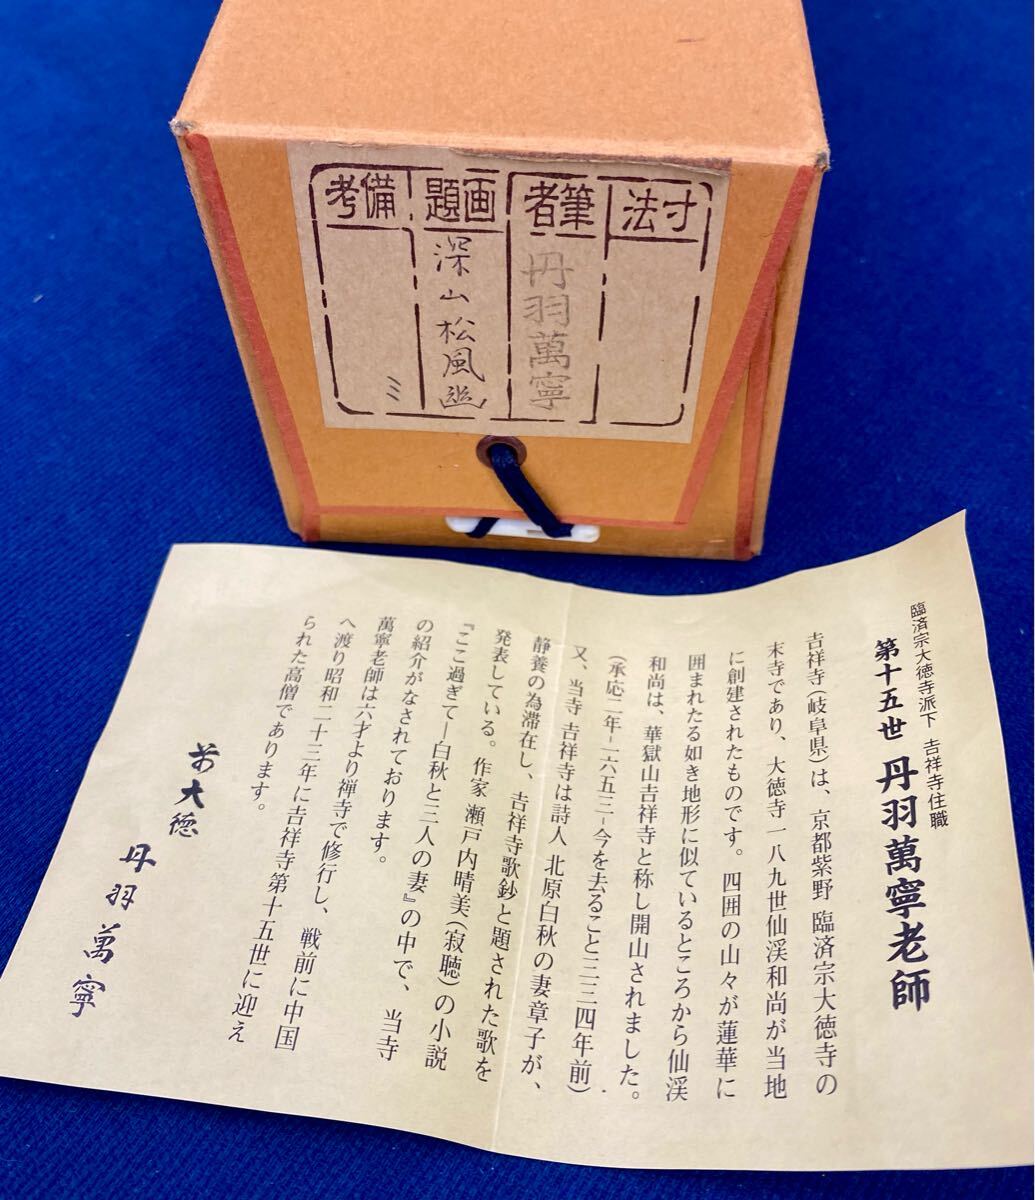 寸法
筆者
丹羽萬寧
画題
深山松風
備考
臨済宗大徳寺派下 吉祥寺住職
第十五世 丹羽萬寧老師
吉祥寺(岐阜県)は、京都紫野 臨済宗大徳寺の
末寺であり、大徳寺一八九世仙渓和尚が当地
に創建されたものです。四囲の山々が蓮華に
囲まれたる如き地形に似ているところから仙渓
和尚は、華獄山吉祥寺と称し開山されました。
(承応二年-一六五三-今を去ること三三四年前)
又、当寺 吉祥寺は詩人 北原白秋の妻章子が、
静養の為滞在し、吉祥寺歌鈔と題された歌を
発表している。作家 瀬戸内晴美(寂聴)の小説
『ここ過ぎて―白秋と三人の妻』の中で、当寺
の紹介がなされております。
萬寧老師は六才より禅寺で修行し、戦前に中国
へ渡り昭和二十三年に吉祥寺第十五世に迎え
られた高僧であります。
前大徳
丹羽萬寧